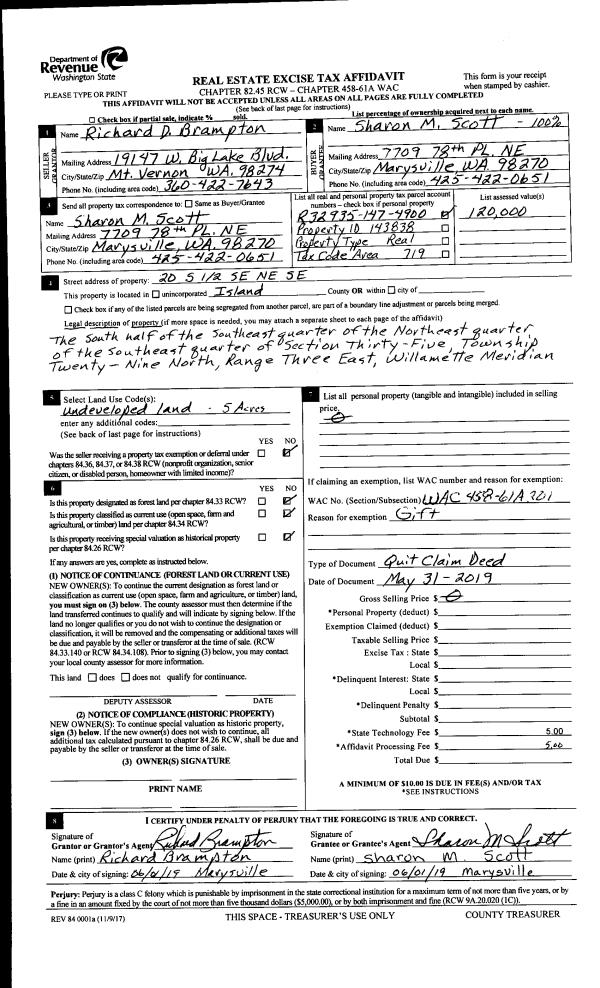 Department of
Revenue
Washington State
PLEASE TYPE OR PRINT
REAL ESTATE EXCISE TAX AFFIDAVIT
CHAPTER 82.45 RCW – CHAPTER 458-61A WAC
This form is your receipt
when stamped by cashier.
THIS AFFIDAVIT WILL NOT BE ACCEPTED UNLESS ALL AREAS ON ALL PAGES ARE FULLY COMPLETED
(See back of last page for instructions)
☐ Check box if partial sale, indicate % ______ sold.
List percentage of ownership acquired next to each name.
1 Name Richard D. Brampton
SELLER GRANTOR
Mailing Address 19147 W. Big Lake Blvd.
City/State/Zip Mt. Vernon WA. 98274
Phone No. (including area code) 360-422-7643
2 Name Sharon M. Scott - 100%
BUYER GRANTEE
Mailing Address 7709 78th PL. NE
City/State/Zip Marysville WA 98270
Phone No. (including area code) 425-422-0651
3 Send all property tax correspondence to: ☐ Same as Buyer/Grantee
Name Sharon M. Scott
Mailing Address 7709 78th PL. NE
City/State/Zip Marysville, WA. 98270
Phone No. (including area code) 425-422-0651
List all real and personal property tax parcel account
numbers – check box if personal property
R32935-147-4900 ☑
Property ID 143838 ☐
Property Type Real ☐
Tax Code Area 719 ☐
List assessed value(s)
120,000
4 Street address of property: 20 S 1/2 SE NE SE
This property is located in ☐ unincorporated Island County OR within ☐ city of
☐ Check box if any of the listed parcels are being segregated from another parcel, are part of a boundary line adjustment or parcels being merged.
Legal description of property (if more space is needed, you may attach a separate sheet to each page of the affidavit)
The South half of the Southeast quarter of the Northeast quarter
of the Southeast quarter of Section Thirty-Five, Township
Twenty-Nine North, Range Three East, Willamette Meridian
5 Select Land Use Code(s):
undeveloped land - 5 Acres
enter any additional codes:
(See back of last page for instructions)
YES NO
Was the seller receiving a property tax exemption or deferral under
chapters 84.36, 84.37, or 84.38 RCW (nonprofit organization, senior
citizen, or disabled person, homeowner with limited income)? ☐ ☑
6 YES NO
Is this property designated as forest land per chapter 84.33 RCW? ☐ ☑
Is this property classified as current use (open space, farm and
agricultural, or timber) land per chapter 84.34 RCW? ☐ ☑
Is this property receiving special valuation as historical property
per chapter 84.26 RCW? ☐ ☑
If any answers are yes, complete as instructed below.
(1) NOTICE OF CONTINUANCE (FOREST LAND OR CURRENT USE)
NEW OWNER(S): To continue the current designation as forest land or
classification as current use (open space, farm and agriculture, or timber) land,
you must sign on (3) below. The county assessor must then determine if the
land transferred continues to qualify and will indicate by signing below. If the
land no longer qualifies or you do not wish to continue the designation or
classification, it will be removed and the compensating or additional taxes will
be due and payable by the seller or transferor at the time of sale. (RCW
84.33.140 or RCW 84.34.108). Prior to signing (3) below, you may contact
your local county assessor for more information.
This land ☐ does ☐ does not qualify for continuance.
DEPUTY ASSESSOR DATE
(2) NOTICE OF COMPLIANCE (HISTORIC PROPERTY)
NEW OWNER(S): To continue special valuation as historic property,
sign (3) below. If the new owner(s) does not wish to continue, all
additional tax calculated pursuant to chapter 84.26 RCW, shall be due and
payable by the seller or transferor at the time of sale.
(3) OWNER(S) SIGNATURE
PRINT NAME
7 List all personal property (tangible and intangible) included in selling
price.
If claiming an exemption, list WAC number and reason for exemption:
WAC No. (Section/Subsection) WAC 458-61A 201
Reason for exemption Gift
Type of Document Quit Claim Deed
Date of Document May 31-2019
Gross Selling Price $
*Personal Property (deduct) $
Exemption Claimed (deduct) $
Taxable Selling Price $
Excise Tax : State $
Local $
*Delinquent Interest: State $
Local $
*Delinquent Penalty $
Subtotal $
*State Technology Fee $ 5.00
*Affidavit Processing Fee $ 5.00
Total Due $
A MINIMUM OF $10.00 IS DUE IN FEE(S) AND/OR TAX
*SEE INSTRUCTIONS
8 I CERTIFY UNDER PENALTY OF PERJURY THAT THE FOREGOING IS TRUE AND CORRECT.
Signature of
Grantor or Grantor's Agent Richard Brampton
Name (print) Richard Brampton
Date & city of signing: 06/01/19 Marysville
Signature of
Grantee or Grantee's Agent Sharon M Scott
Name (print) Sharon M. Scott
Date & city of signing: 06/01/19 Marysville
Perjury: Perjury is a class C felony which is punishable by imprisonment in the state correctional institution for a maximum term of not more than five years, or by
a fine in an amount fixed by the court of not more than five thousand dollars ($5,000.00), or by both imprisonment and fine (RCW 9A.20.020 (1C)).
REV 84 0001a (11/9/17)
THIS SPACE - TREASURER'S USE ONLY
COUNTY TREASURER